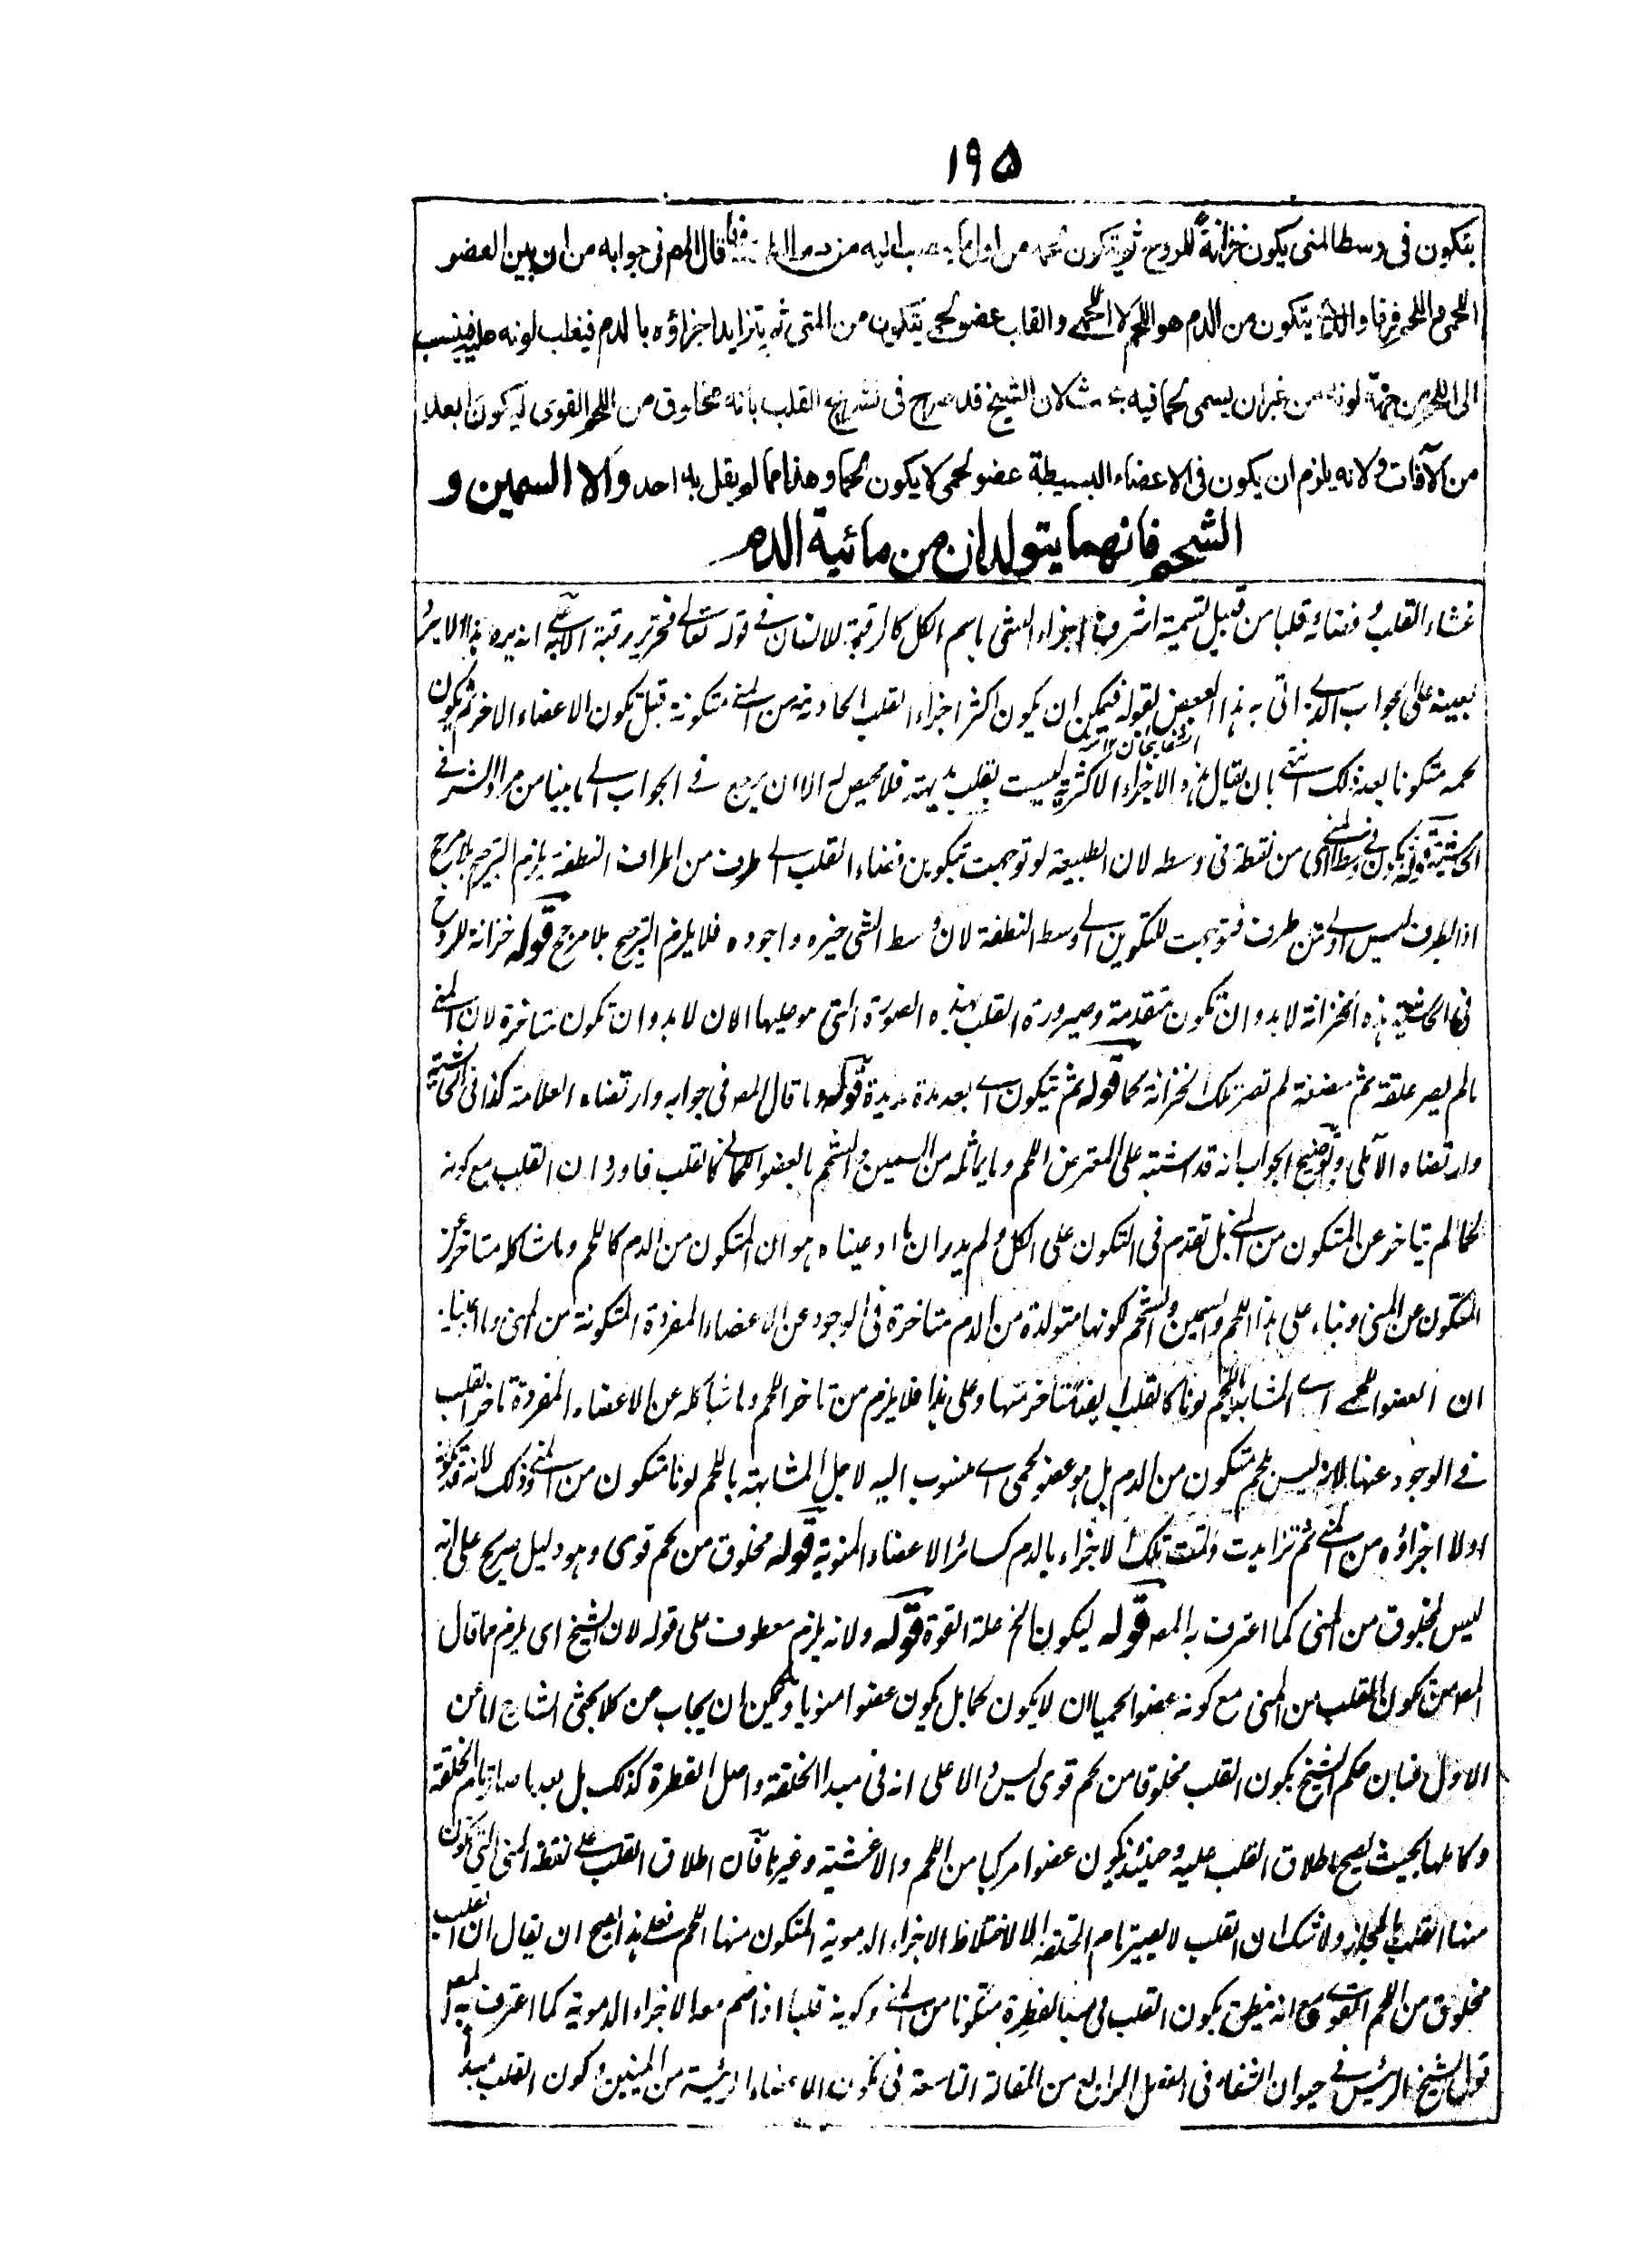 ١٩٥
يتكون فى وسط المنى يكون خزانة للروح ثم يتكون لحمه من اول ما ينصب اليه من دم قال المص فى جوابه من ان بين العضو
اللحمى واللحم فرقا والذى يتكون من الدم هو اللحم لا اللحمى والقلب عضو لحمى يتكون من المنى ثم يتزايد اجزاؤه بالدم فيغلب لونه عليه فينسب
الى اللحم من جهة لونه من غير ان يسمى لحما فيه بحث لان الشيخ قد صرح فى تشريح القلب بانه مخلوق من اللحم القوى ليكون ابعد
من الآفات ولانه يلزم ان يكون فى الاعضاء البسيطة عضو لحمى لا يكون لحما وهذا مما لم يقل به احد والا السمين و
الشحم فانهما يتولدان من مائية الدم
غشاء القلب وفضاؤه قلبا من قبيل تسمية اشرف اجزاء الشى باسم الكل كالرقبة للانسان فى قوله تعالى فتحرير رقبة الا انه يرد
بعينه على الجواب الذى اتى به هذا البعض بقوله فيمكن ان يكون اكثر اجزاء القلب الحادثة من المنى متكونة قبل تكون الاعضاء الاخر ثم يكون
لحمه متكونا بعد ذلك انتهى بان يقال هذه الاجزاء الاكثرية ليست بقلب بديهة فلا محيص له الا ان يرجع فى الجواب الى ما بينا من مراد الشارح فى
الحاشية قوله يتكون فى وسط المنى اى من نقطة فى وسطه لان الطبيعة لو توجهت بتكوين فضاء القلب الى طرف من اطراف النطفة يلزم الترجيح بلا مرجح
اذ الطرف ليس اولى من طرف فتوجهت للتكوين الى وسط النطفة لان وسط الشى خيره واجوده فلا يلزم الترجيح بلا مرجح قوله خزانة للروح
فى الحاشية هذه الخزانة لا بد وان تكون متقدمة وصيرورة القلب بهذه الصورة التى هو عليها الان لا بد وان تكون متاخرة لان المنى
ما لم يصر علقة ثم مضغة لم تصر تلك الخزانة لحما قوله ثم يتكون اى بعد مدة مديدة قوله وما قال المص فى جوابه وارتضاه العلامة كذا فى الحاشية
وارتضاه الآملى وتوضيح الجواب انه قد اشتبه على المعترض اللحم وما يماثله من السمين والشحم بالعضو اللحمانى كالقلب فاورد ان القلب مع كونه
لحما لم يتاخر عن المتكون من المنى بل تقدم فى التكون على الكل ولم يدر ان ما ادعيناه هو ان المتكون من الدم كاللحم وما شاكله متاخر عن
المتكون من المنى وبناء على هذا اللحم والسمين والشحم لكونها متولدة من الدم متاخرة فى الوجود عن الاعضاء المفردة المتكونة من المنى وما ادعينا
ان العضو اللحمى اى المشابه باللحم لونا كالقلب ايضا متاخر منها وعلى هذا فلا يلزم من تاخر اللحم وما شاكله عن الاعضاء المفردة تاخر القلب
فى الوجود عنها لانه ليس بلحم متكون من الدم بل هو عضو لحمى اى منسوب اليه لاجل المشابهة باللحم لونا متكون من المنى وذلك لانه قد تكون
اولا اجزاؤه من المنى ثم تزايدت ونمت تلك الاجزاء بالدم كسائر الاعضاء المنوية قوله مخلوق من لحم قوى وهو دليل صريح على انه
ليس بمخلوق من المنى كما اعترف به المص قوله ليكون الخ علة القوة قوله ولانه يلزم معطوف على قوله لان الشيخ اى يلزم مما قال
المص من تكون القلب من المنى مع كونه عضوا لحميا ان لا يكون لحما بل يكون عضوا منويا ويمكن ان يجاب عن كلا بحثى الشارح اما عن
الاول فبان حكم الشيخ بكون القلب مخلوقا من لحم قوى ليس دالا على انه فى مبدا الخلقة واصل الفطرة كذلك بل بعد ما صار تام الخلقة
وكاملها بحيث يصح اطلاق القلب عليه وحينئذ يكون عضوا مركبا من اللحم والاغشية وغيرها فان اطلاق القلب على نقطة المنى التى تكون
منها القلب بالمجاز ولا شك ان القلب لا يصير تام الخلقة الا لاختلاط الاجزاء الدموية المتكون منها اللحم فعلى هذا يصح ان يقال ان القلب
مخلوق من اللحم القوى مع انه ينطق بكون القلب فى مبدا الفطرة متكونا من المنى وكونه قلبا اذا ضم معه الاجزاء الدموية كما اعترف به المص
قول الشيخ الرئيس فى حيوان الشفاء فى الفصل الرابع من المقالة التاسعة فى تكون الاعضاء الرئيسة من المنيين وكون القلب مبدا